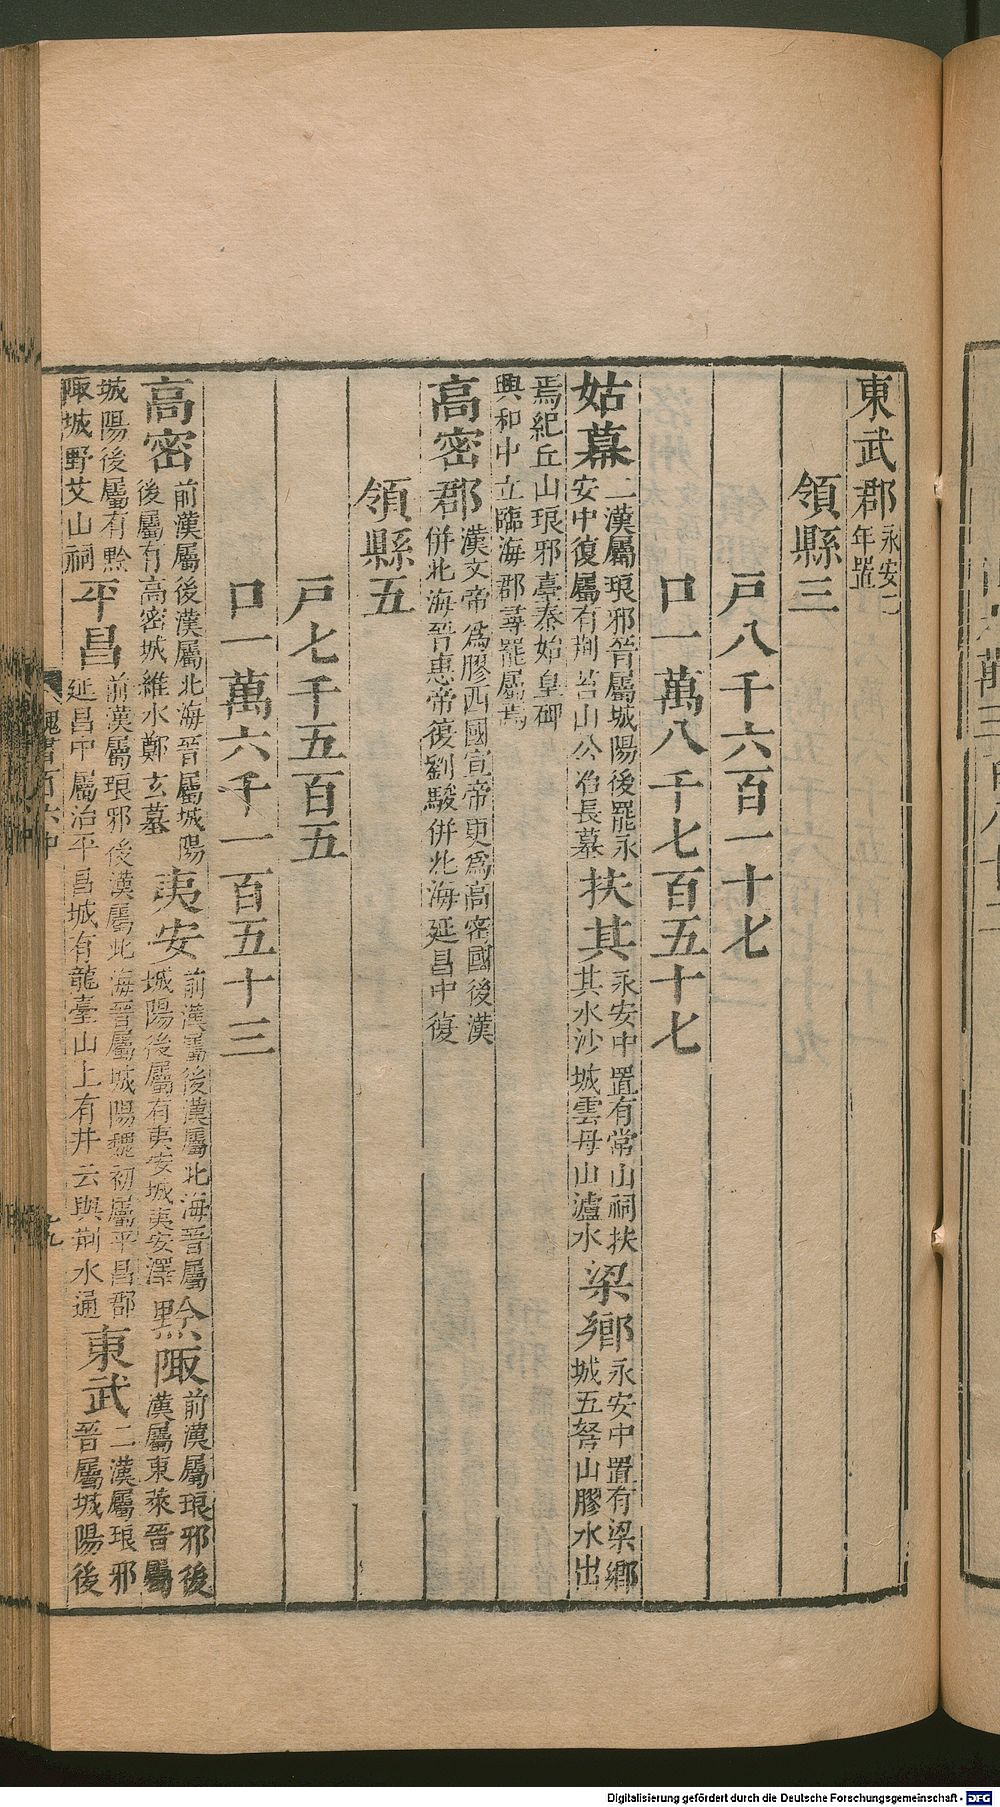 東武郡永安二年置
領縣三
戸八千六百一十七
口一萬八千七百五十七
姑幕二漢屬琅邪晉屬城陽後罷永安中復屬有荆䑓山公冶長墓扶其永安中置有常山祠扶其水沙城雲母山瀘水梁鄉永安中置有梁鄉城五弩山膠水出
焉紀丘山琅邪臺秦始皇碑興和中立臨海郡尋罷屬焉
高密郡漢文帝爲膠西國宣帝更爲高密國後漢併北海晉惠帝復劉駿併北海延昌中復
領縣五
戸七千五百五
口一萬六千一百五十三
高密前漢屬後漢屬北海晉屬城陽後屬有高密城維水鄭玄墓夷安前漢屬後漢屬北海晉屬城陽後屬有夷安城夷安澤黔陬前漢屬琅邪後漢屬東萊晉屬
城陽後屬有黔陬城野艾山祠平昌前漢屬琅邪後漢屬北海晉屬城陽魏初屬平昌郡延昌中屬治平昌城有龍臺山上有井云與荆水通東武二漢屬琅邪晉屬城陽後
魏書百六中
十九
Digitalisierung gefördert durch die Deutsche Forschungsgemeinschaft - DFG